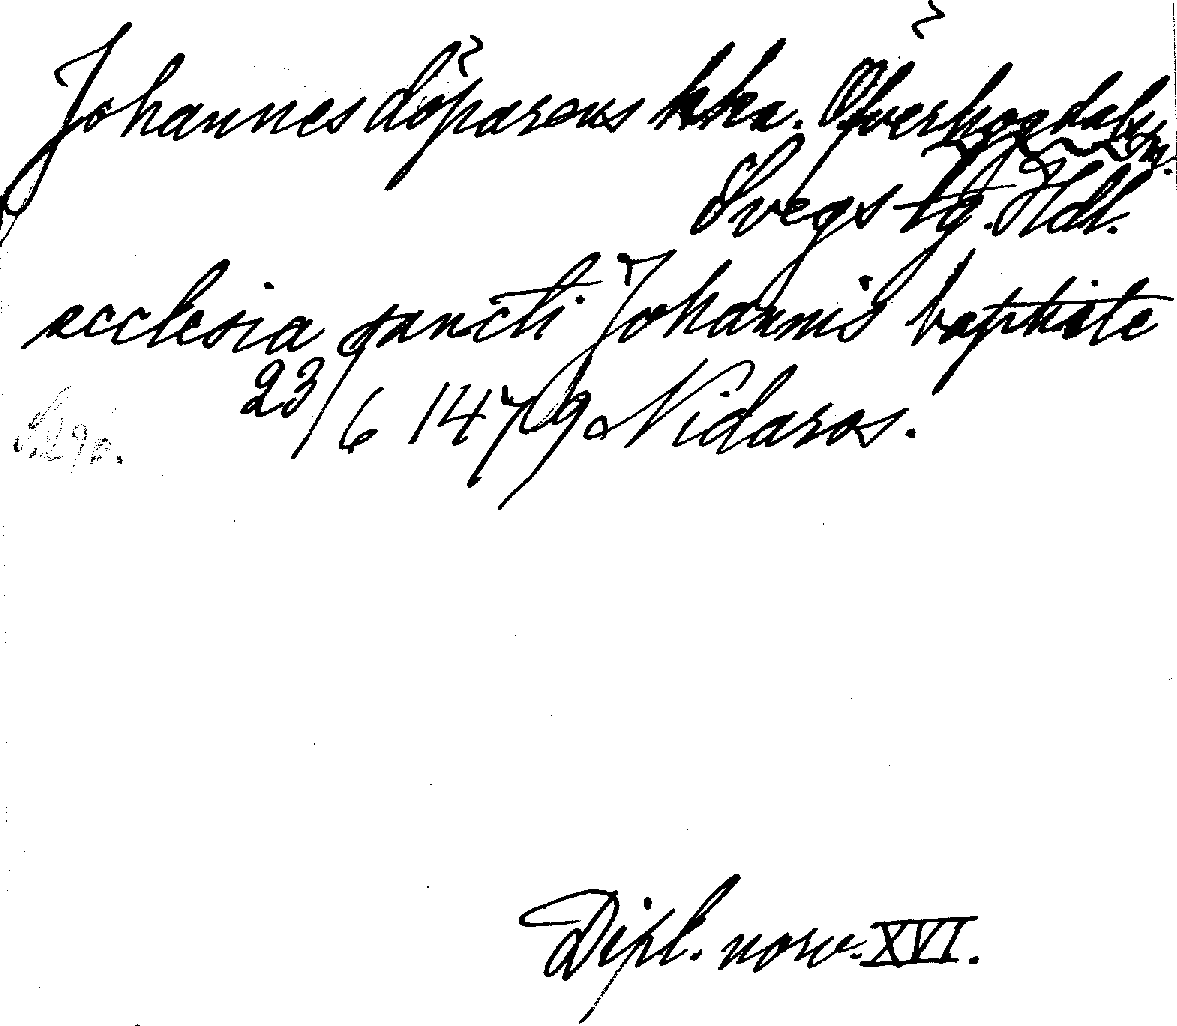 Johannes döparens kka. Överhogdals sn.
Svegs tg. Hdl.
ecclesia sancti Johannis baptiste
23/6 1479 Nidaros.
S. 290.
Dipl. norv. XVI.